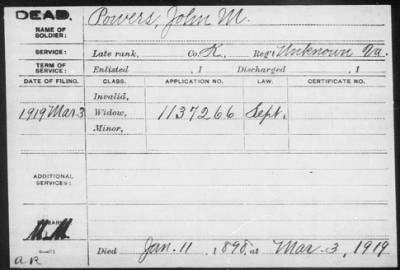 DEAD.
NAME OF SOLDIER: Powers, John M.
SERVICE: Late rank, Co. K, Reg't Unknown Va.
TERM OF SERVICE: Enlisted , 1 Discharged , 1
DATE OF FILING. CLASS. APPLICATION NO. LAW. CERTIFICATE NO.
Invalid,
1919 Mar 3 Widow, 1137266 Sept.
Minor,
ADDITIONAL SERVICES:
M.M.
Died Jan. 11, 1898, at Mar. 3, 1919